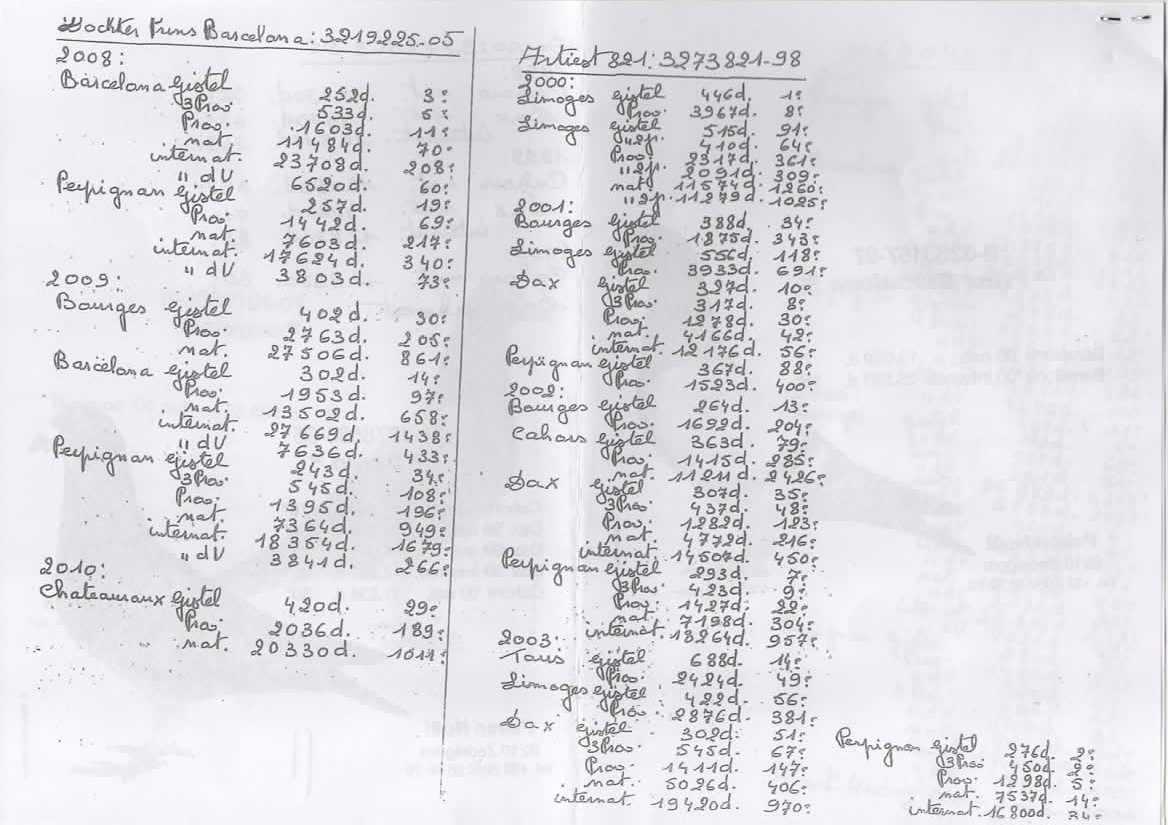 Dochter Prins Barcelona: 3219225-05
2008:
Barcelona Gistel 252d. 3e
3Prov 533d. 5e
Prov. 1603d. 11e
nat. 11484d. 70e
internat. 23708d. 208e
" dV 6520d. 60e
Perpignan Gistel 257d. 19e
Prov. 1442d. 69e
nat. 7603d. 217e
internat. 17624d. 340e
" dV 3803d. 73e
2009:
Bourges Gistel 402d. 30e
Prov. 2763d. 205e
nat. 27506d. 861e
Barcelona Gistel 302d. 14e
Prov. 1953d. 97e
nat. 13502d. 658e
internat. 27669d. 1438e
" dV 7636d. 433e
Perpignan Gistel 243d. 34e
3Prov. 545d. 108e
Prov. 1395d. 196e
nat. 7364d. 949e
internat. 18354d. 1679e
" dV 3841d. 266e
2010:
Chateauroux Gistel 420d. 29e
Prov. 2036d. 189e
nat. 20330d. 1011e
Artiest 821: 3273821-98
2000:
Limoges Gistel 446d. 1e
Prov. 3967d. 8e
Limoges Gistel 515d. 91e
"2p. 410d. 64e
Prov. 2317d. 361e
"2p. 2091d. 309e
nat. 11574d. 1260e
"2p. 11279d. 1025e
2001:
Bourges Gistel 388d. 34e
Prov. 1875d. 343e
Limoges Gistel 556d. 118e
Prov. 3933d. 691e
Dax Gistel 327d. 10e
3Prov. 317d. 8e
Prov. 1278d. 30e
nat. 4166d. 42e
internat. 12176d. 56e
Perpignan Gistel 367d. 88e
Prov. 1523d. 400e
2002:
Bourges Gistel 264d. 13e
Prov. 1692d. 204e
Cahors Gistel 363d. 79e
Prov. 1415d. 285e
nat. 11211d. 2426e
Dax Gistel 307d. 35e
3Prov. 437d. 48e
Prov. 1282d. 123e
nat. 4772d. 216e
internat. 14507d. 450e
Perpignan Gistel 293d. 7e
3Prov. 423d. 9e
Prov. 1427d. 22e
nat. 7198d. 304e
internat. 18264d. 957e
2003:
Tours Gistel 688d. 14e
Prov. 2424d. 49e
Limoges Gistel 422d. 56e
Prov. 2876d. 381e
Dax Gistel 302d. 51e
3Prov. 545d. 67e
Prov. 1411d. 147e
nat. 5026d. 406e
internat. 19420d. 970e
Perpignan Gistel 276d. 2e
3Prov 450d. 2e
Prov. 1298d. 5e
nat. 7537d. 14e
internat. 16800d. 34e